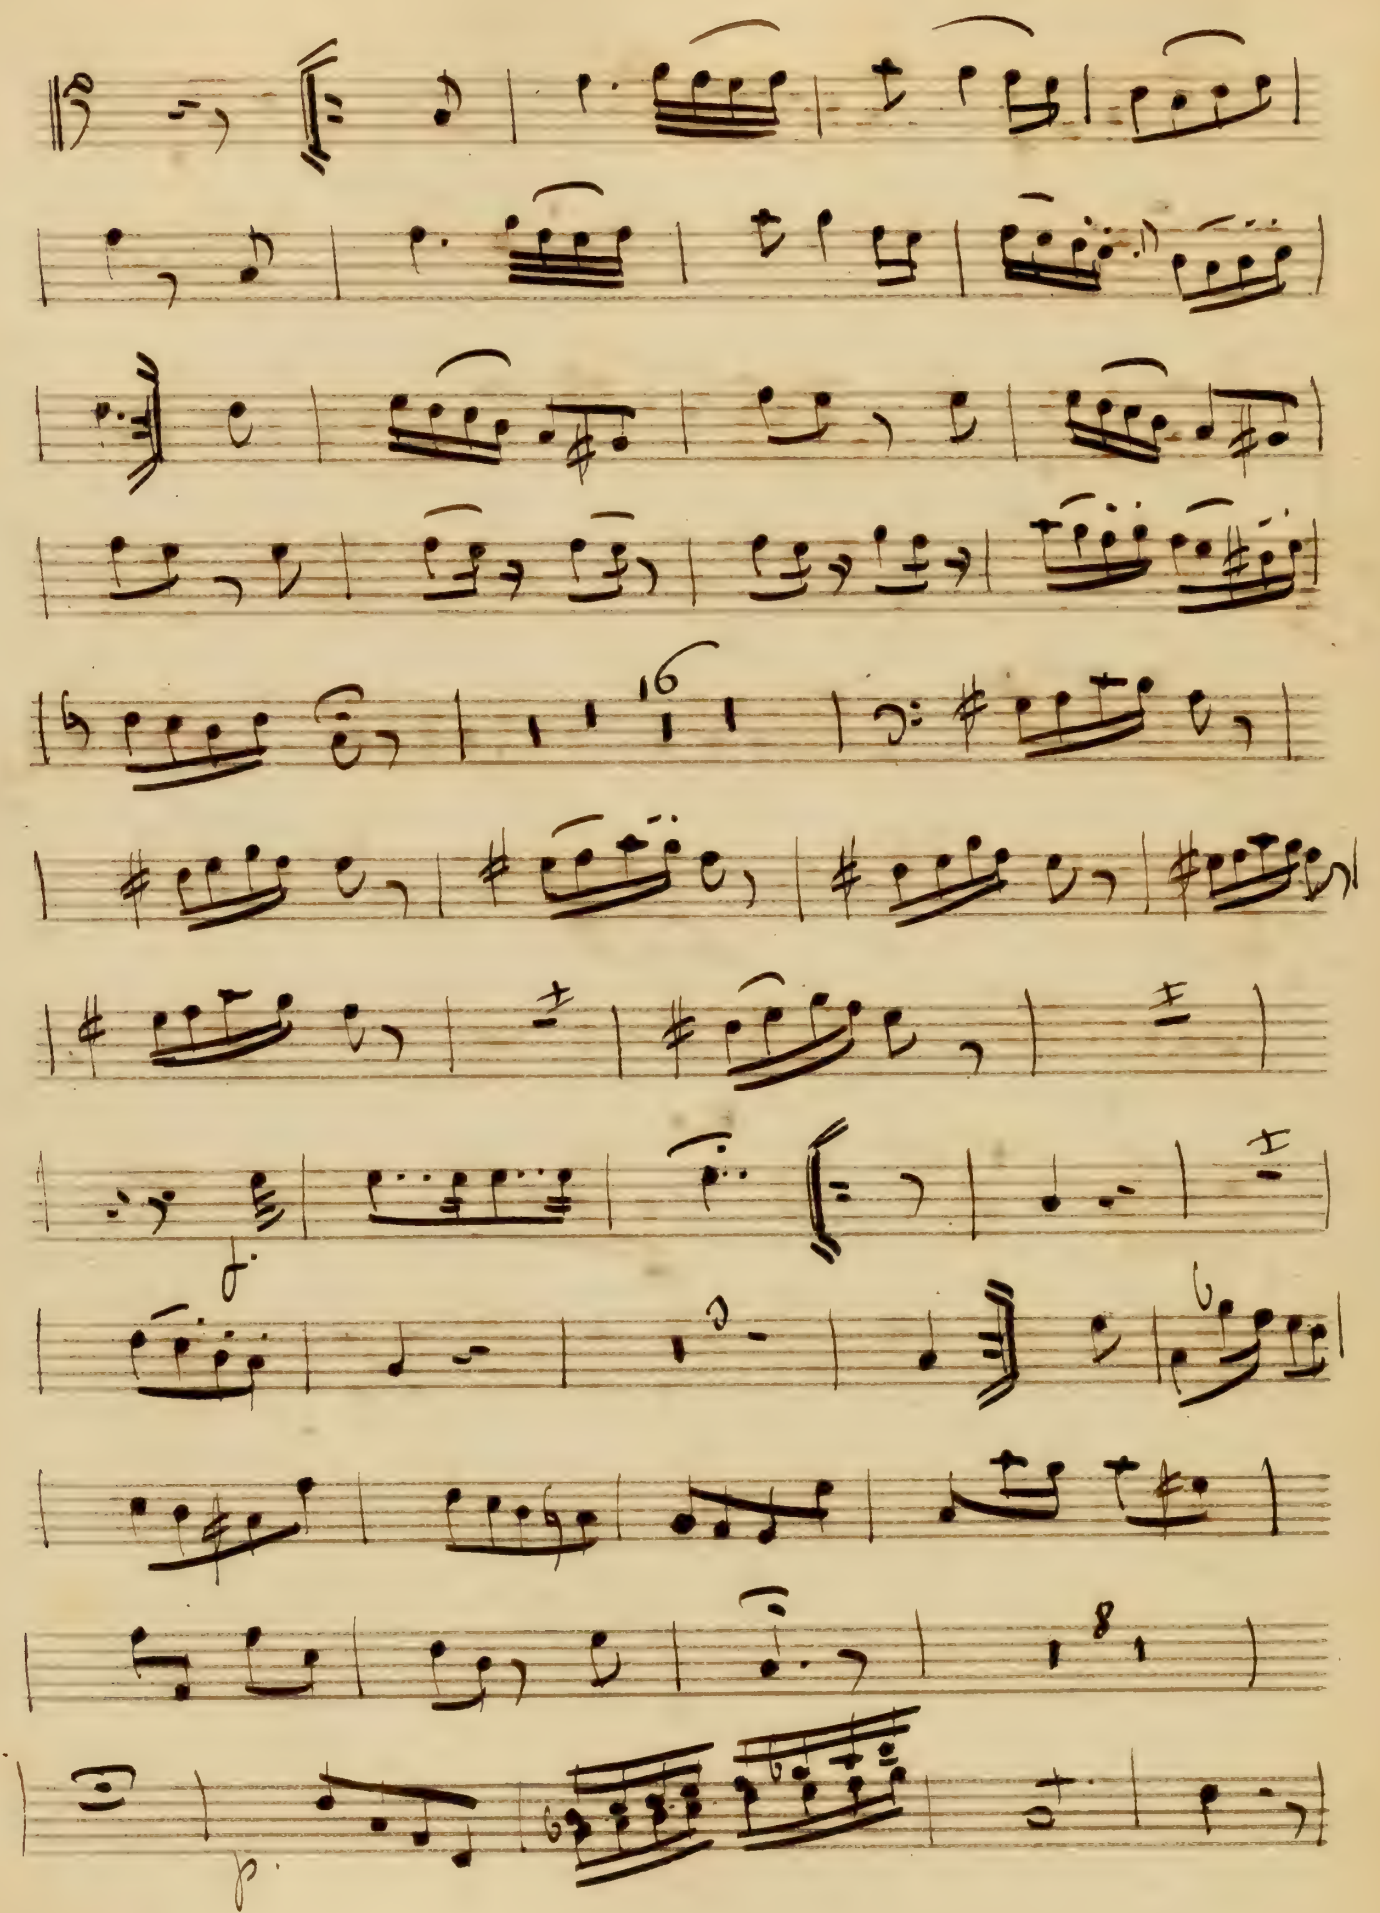 16
f.
3
8
p.